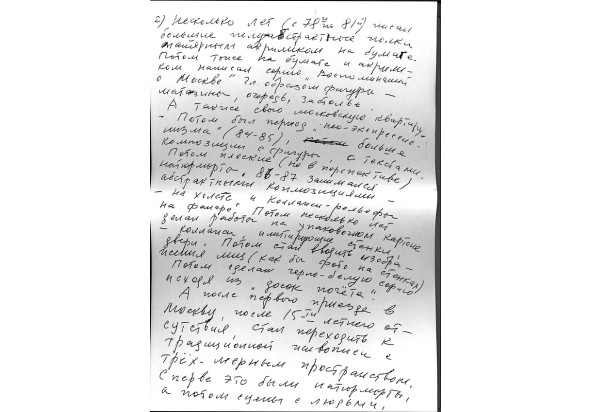 2) Несколько лет (с 78го по 81й) писал
большие полуабстрактные полки
малярным акриликом на бумаге.
Потом тоже на бумаге и акрили-
ком написал серию "Воспоминания
о Москве" гл. образом фигуры –
магазины, огороды, застолье.
А также свою московскую квартиру.
Потом был период "нео-экспрессио-
низма" (84-85), большие
композиции с фигурами с текстами.
Потом плоские (не в перспективе)
натюрморты. 86-87 занимался
абстрактными композициями –
– на холсте и коллажи-рельефы
на фанере. Потом несколько лет
делал работы на упаковочном картоне
– коллажи, имитирующие стенки,
двери. Потом стал вводить изобра-
жения лиц (как бы фото на стенках)
Потом сделал черно-белую серию
исходя из "досок почёта".
А после первого приезда в
Москву, после 15-ти летнего от-
сутствия стал переходить к
традиционной живописи с
трёх-мерным пространством.
Сперва это были натюрморты,
а потом сцены с людьми,